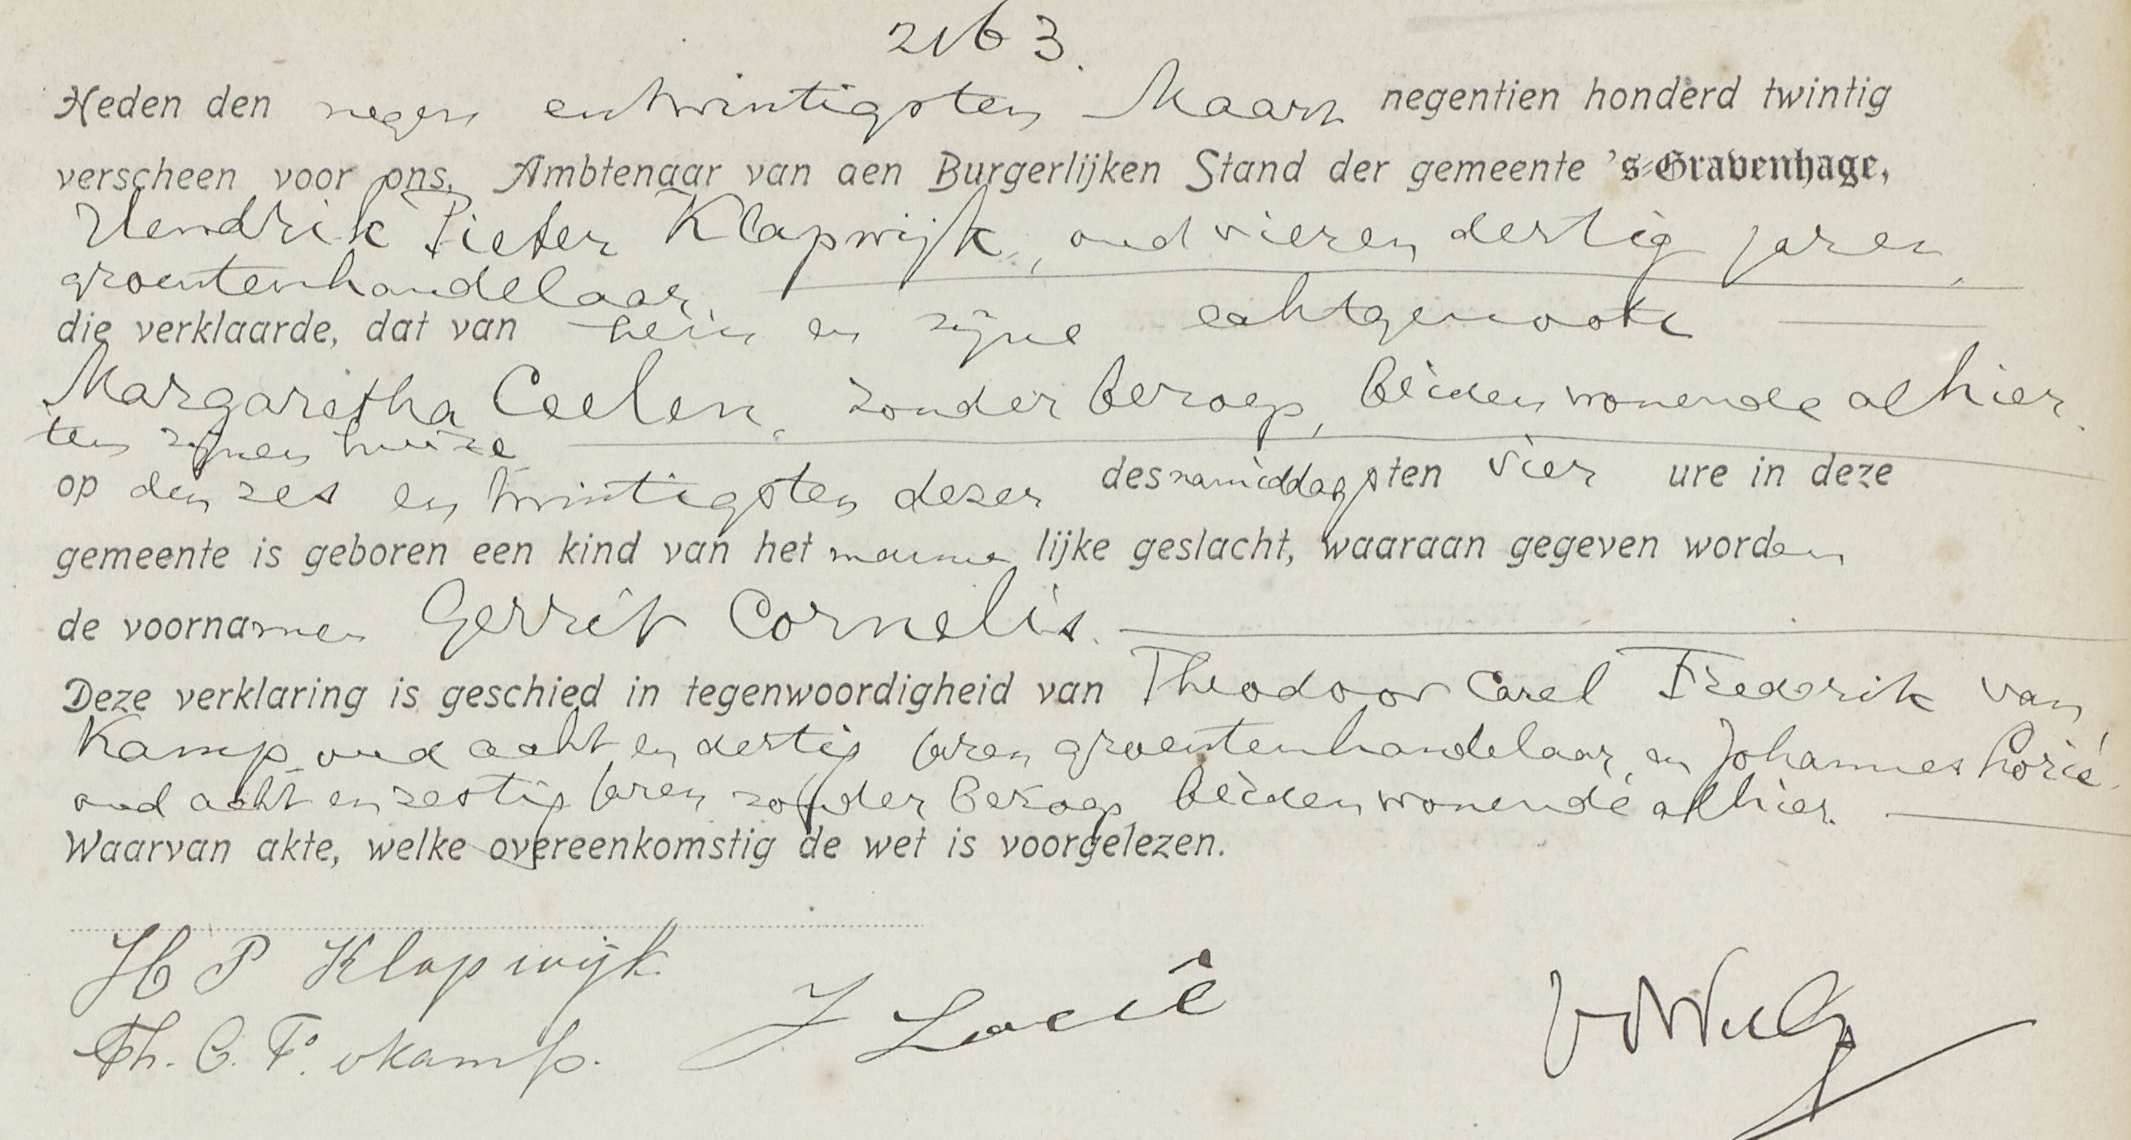 2163.
Heden den negen en twintigsten Maart negentien honderd twintig
verscheen voor ons, Ambtenaar van den Burgerlijken Stand der gemeente 's-Gravenhage,
Hendrik Pieter Klapwijk, oud vier en dertig jaren,
groentenhandelaar
die verklaarde, dat van hem en zijne echtgenoote
Margaretha Ceelen, zonder beroep, beiden wonende alhier.
ten zijnen huize
op den zes en twintigsten dezer des namiddags ten vier ure in deze
gemeente is geboren een kind van het manne lijke geslacht, waaraan gegeven worden
de voornamen Gerrit Cornelis.
Deze verklaring is geschied in tegenwoordigheid van Theodoor Carel Frederik van
Kamp oud acht en dertig jaren groentenhandelaar, en Johannes Lorié
oud acht en zestig jaren zonder beroep beiden wonende alhier.
Waarvan akte, welke overeenkomstig de wet is voorgelezen.
H P Klapwijk
J Lorié
Th. C. F. v Kamp.